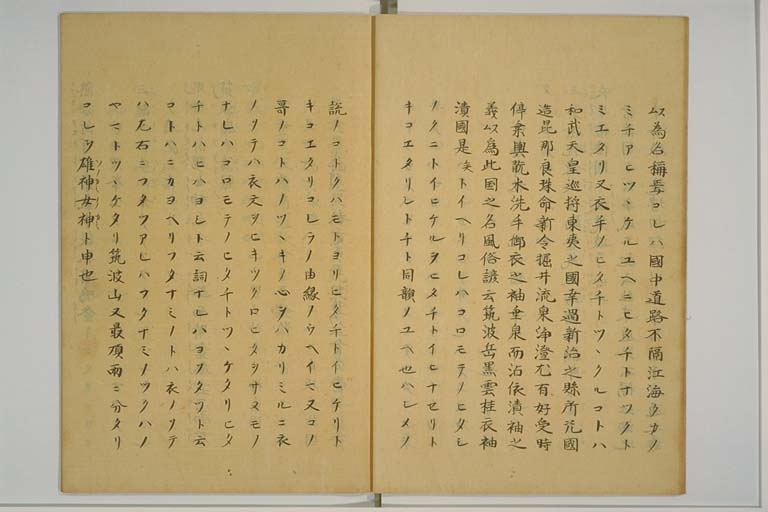 以為名稱焉コレハ國中道路不隔江海ウカノ
ミチアヒツヽケルユヘニヒタチトナツクト
ミエタリ又衣手ノヒタチトツヽクルコトハ
和武天皇巡狩東夷之國幸過新治之縣所𦲷國
造毘那良珠命新令掘井流泉浄澄尤有好愛時
停乗輿翫水洗手御衣之袖垂泉而沾依漬袖之
義以為此國之名風俗諺云筑波岳黒雲挂衣袖
漬國是矣トイヘリコレハコロモテノヒタシ
ノクニトイヒケルヲヒタチトイヒナセリト
キコエタリシトチト同韻ノユヘ也ハシメノ
説ノコトクハモトヨリヒタチトイヒケリト
キコエタリコレラノ由縁ノウヘイマ又コノ
哥ノコトハノツヽキノ心ヲハカリミルニ衣
ノソテハ衣文ヲヒキツクロヒタシサヌモノ
ナレハコロモテノヒタチトツヽケタリヒタ
チトハヒハヨシト云詞ナレハヨソタツト云
コトハニカヨヘリフタナミノトハ衣ノソテ
ハ左右ニフタツアレハフタナミノツクハノ
ヤマトツヽケタリ筑波山又最頂兩ニ分タリ
コレヲ雄神女神ト申也